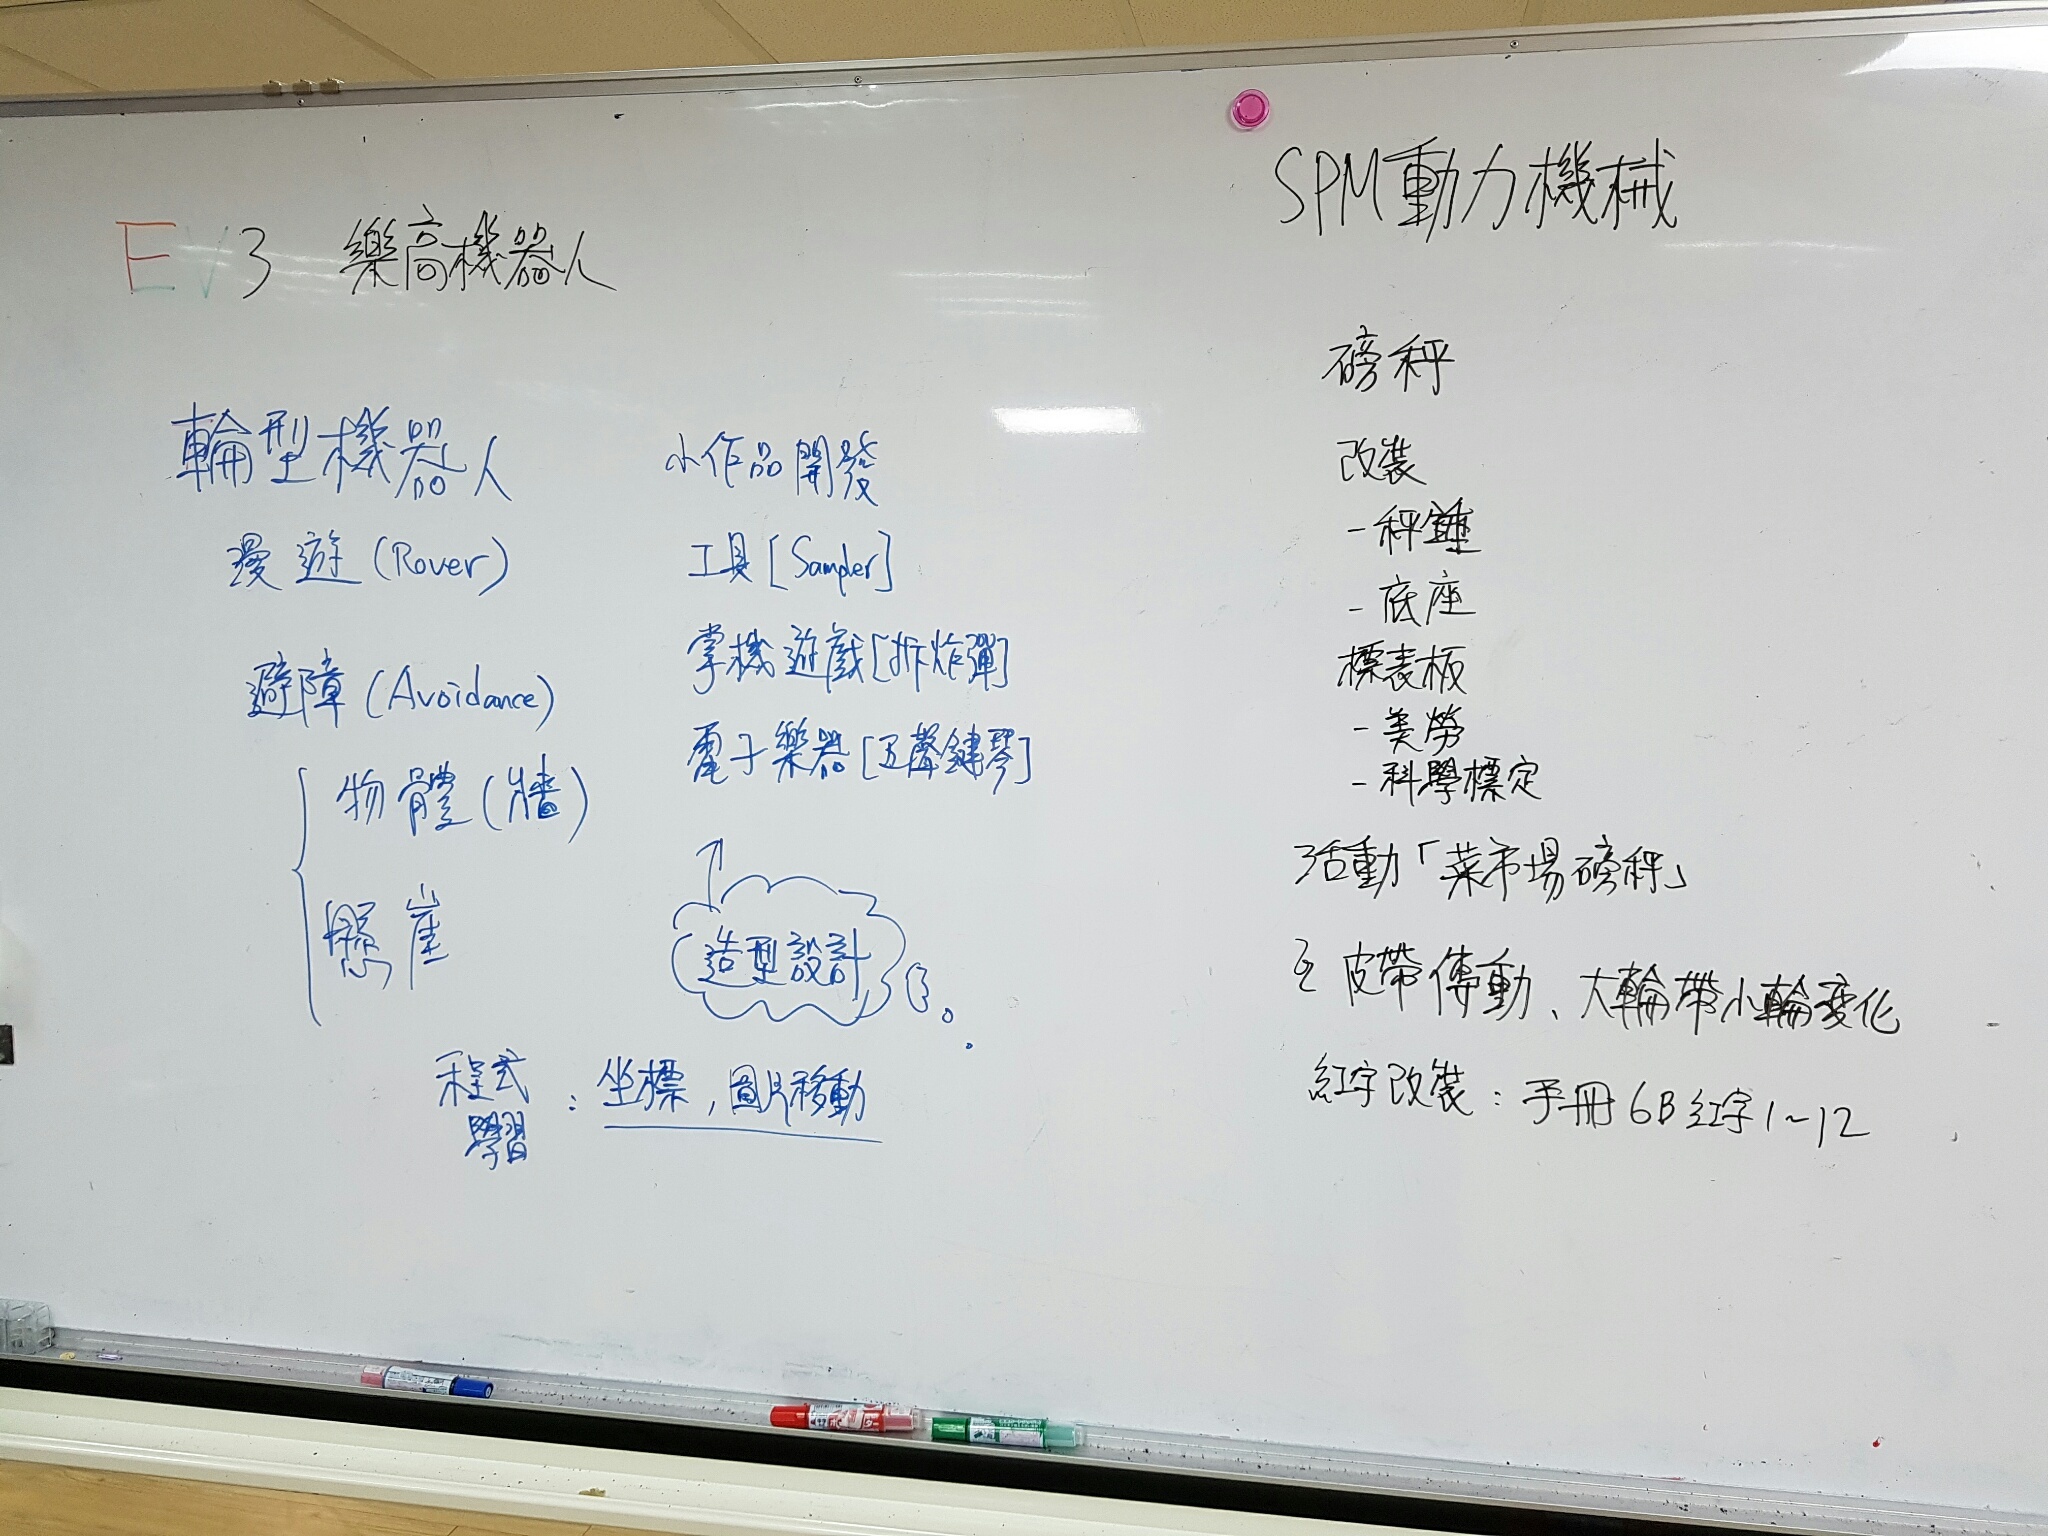 EV3 樂高機器人
輪型機器人
漫遊(Rover)
避障(Avoidance)
物體(牆)
懸崖
小作品開發
工具[Sampler]
掌機遊戲[拆炸彈]
電子樂器[五聲鍵琴]
造型設計
程式
學習:坐標,圖片移動
SPM動力機械
磅秤
改裝
-秤錘
-底座
標表板
-美勞
-科學標定
活動「菜市場磅秤」
皮帶傳動、大輪帶小輪變化
紅字改裝:手冊6B紅字1~12